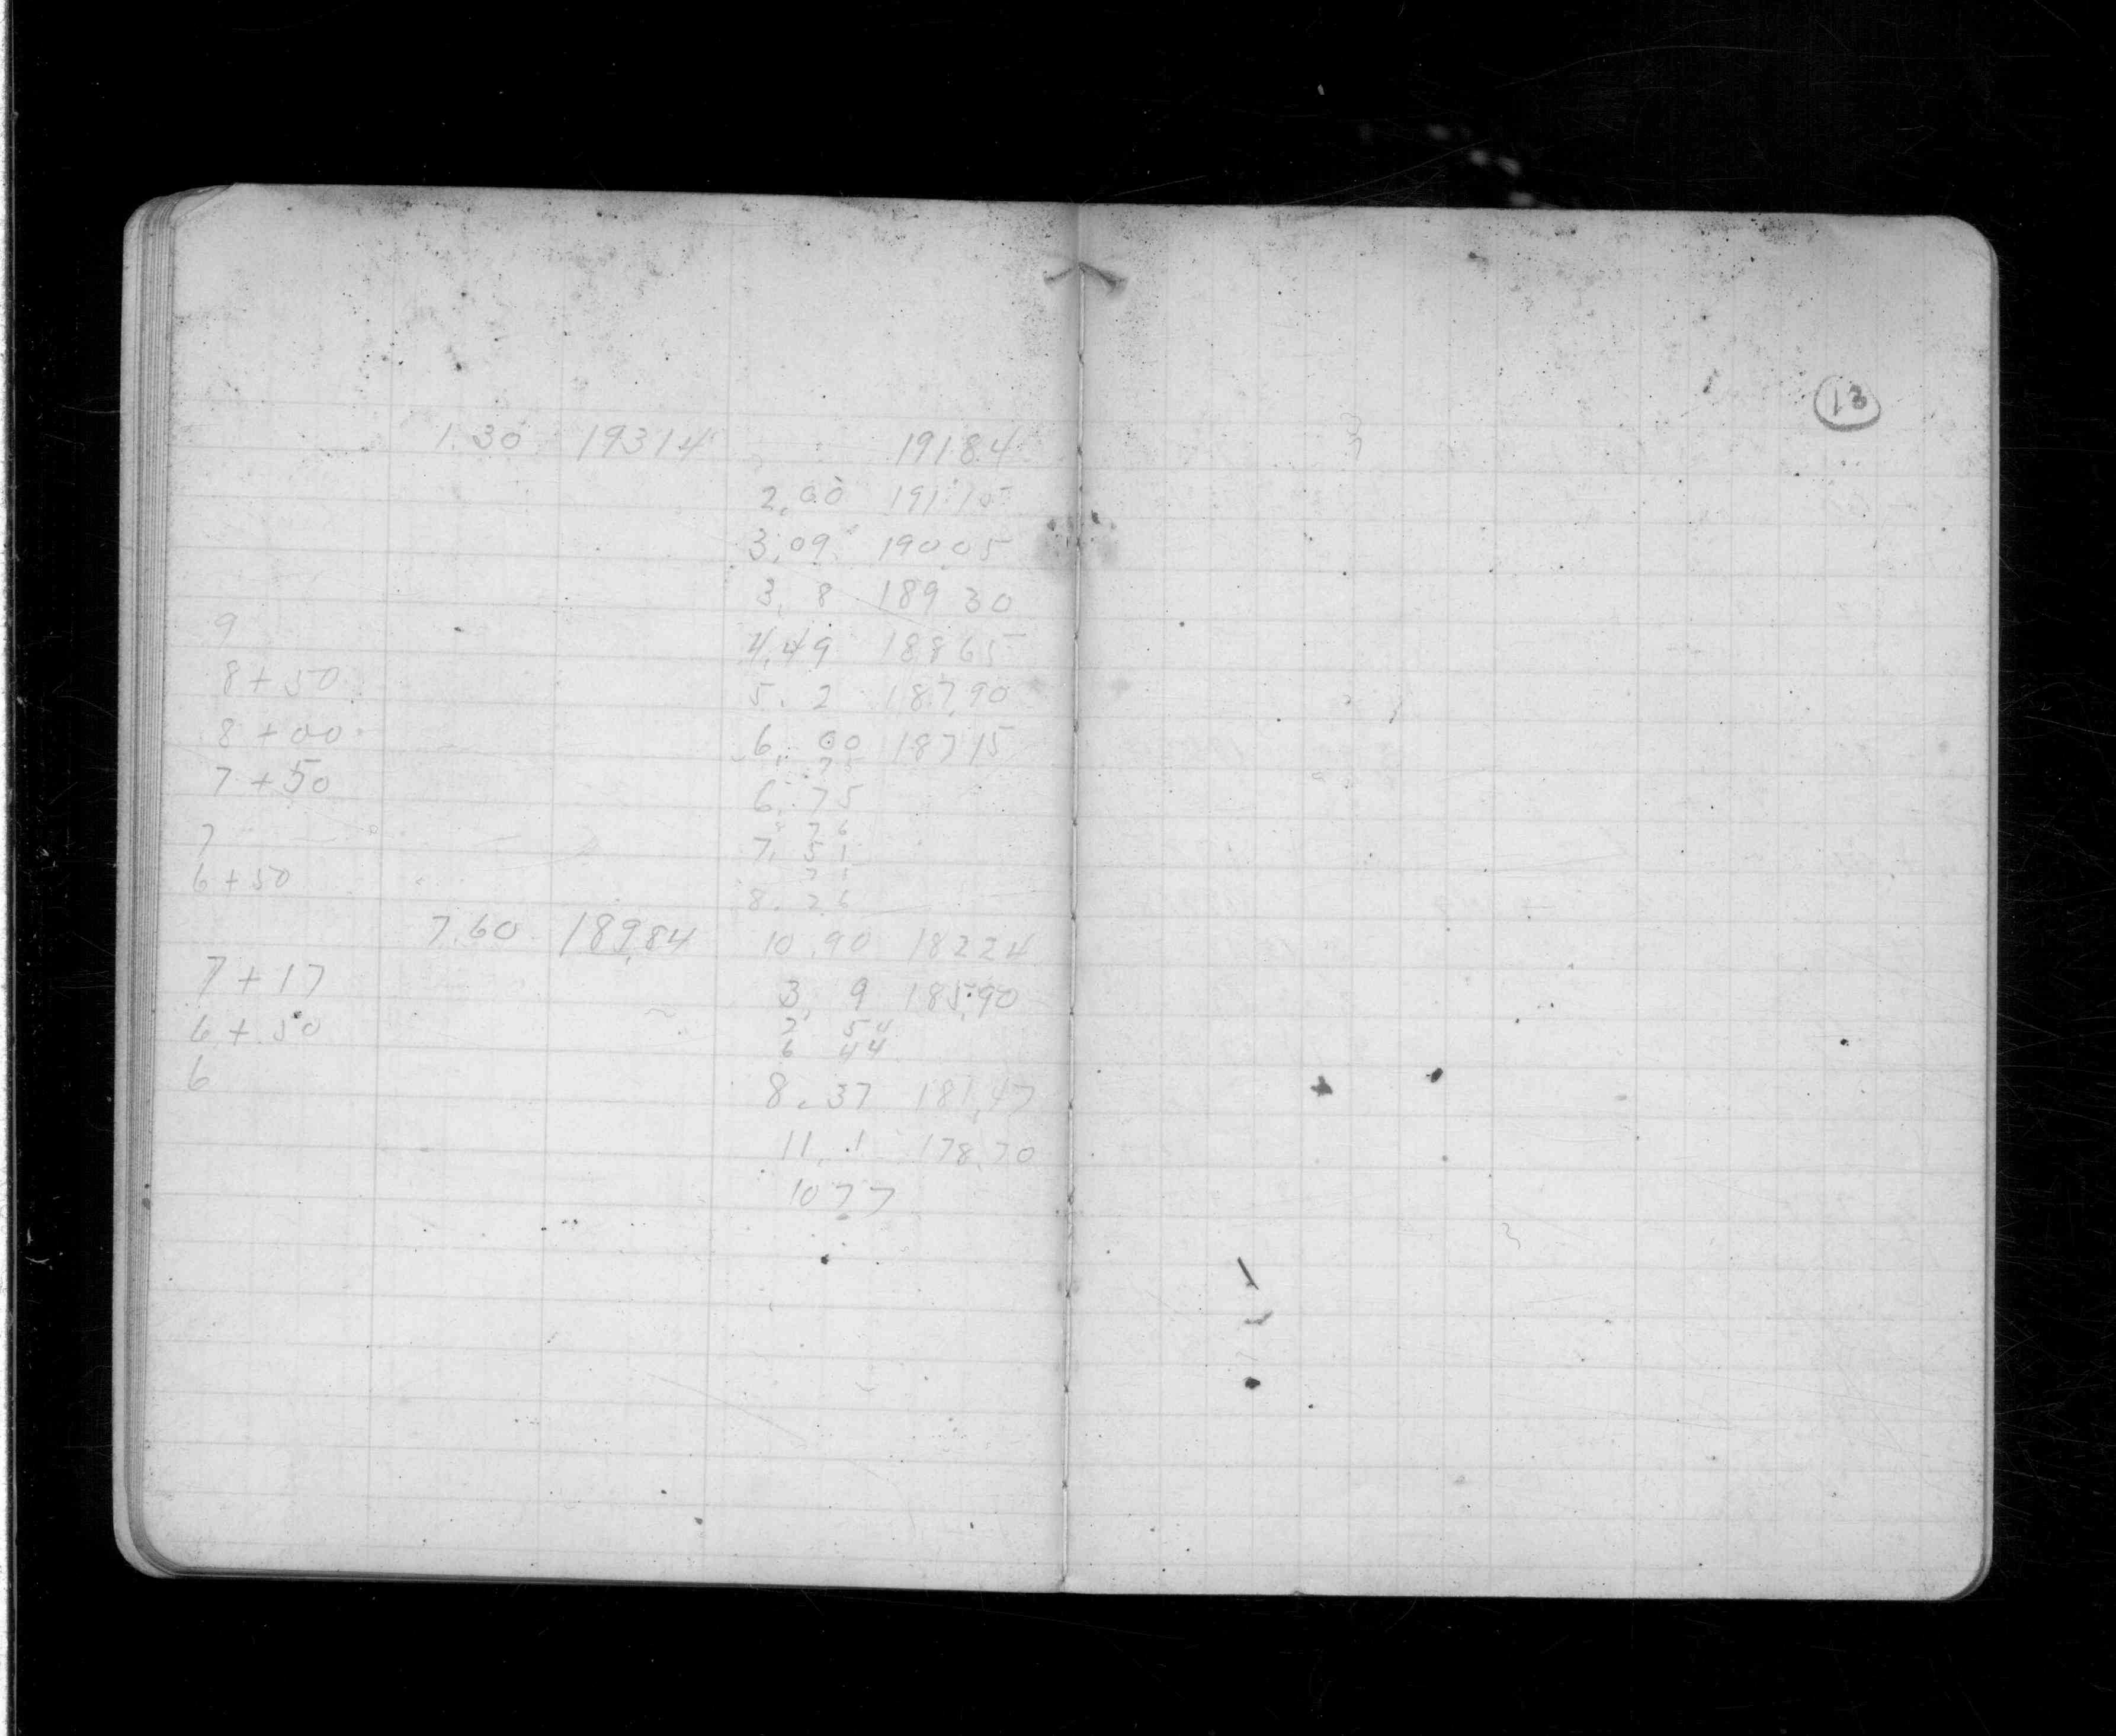 13
1.30 193 14 191.84
2.00 191 15
3.09 190 05
3. 8 189 30
9 4.49 188 65
8 + 50 5. 2 187.90
8 + 00 6. 00 187 15
75
7 + 50 6. 75
76
7 7. 51
6 + 50 8. 26
7.60 189.84 10.90 182 24
7 + 17 3. 9 185.90
6 + 50 2 54
6 44
6 8. 37 181.47
11. 1 178.70
10 77